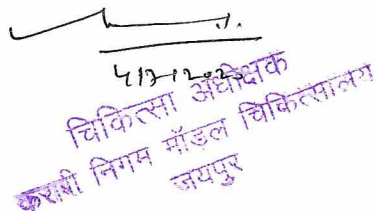 4/3/2020
चिकित्सा अधीक्षक
कराबी निगम मॉडल चिकित्सालय
जयपुर